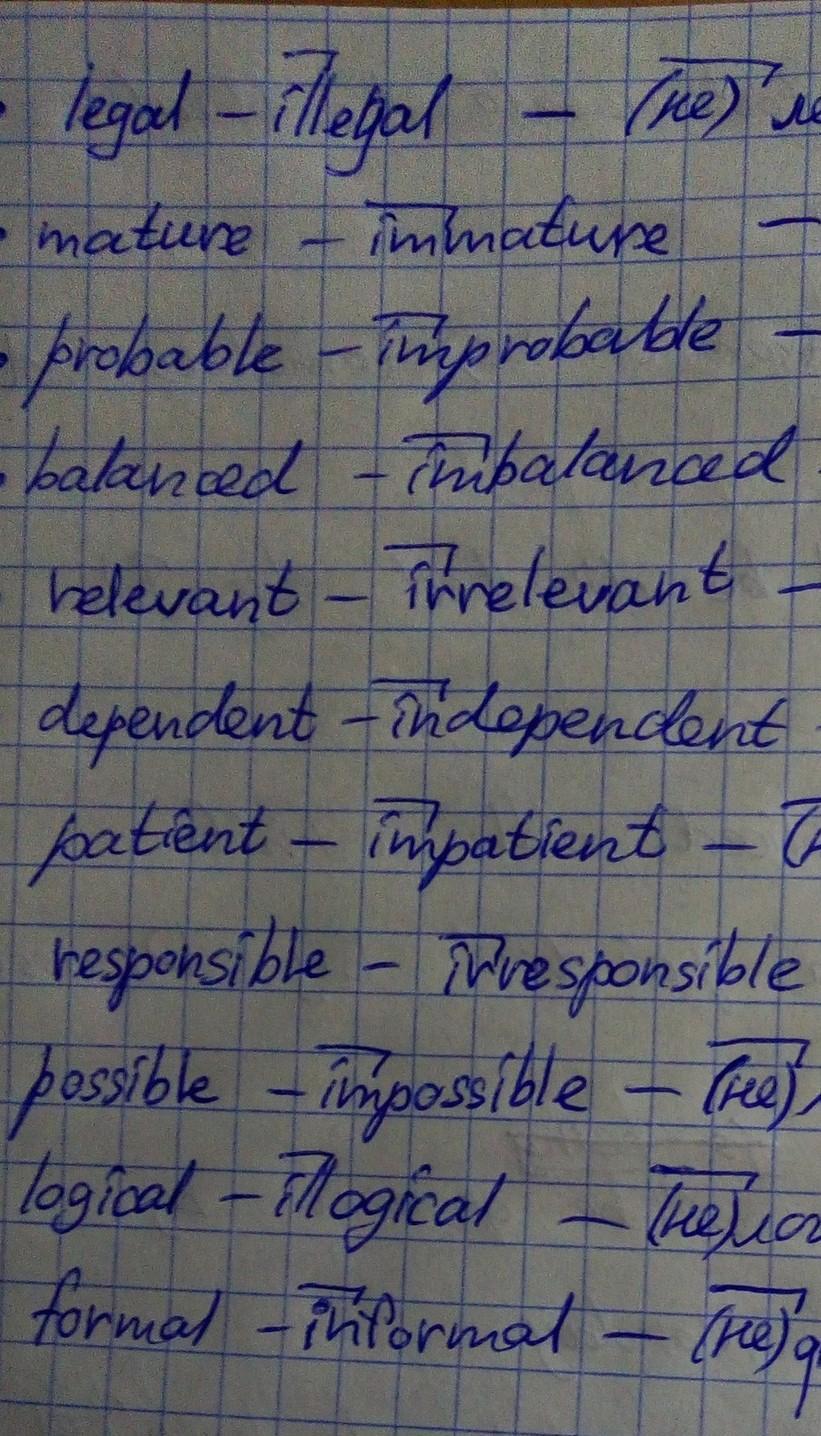 legal – illegal – (не)
mature – immature –
probable – improbable –
balanced – imbalanced
relevant – irrelevant –
dependent – independent
patient – impatient –
responsible – irresponsible
possible – impossible – (не)
logical – illogical – (не)лог
formal – informal – (не)ф